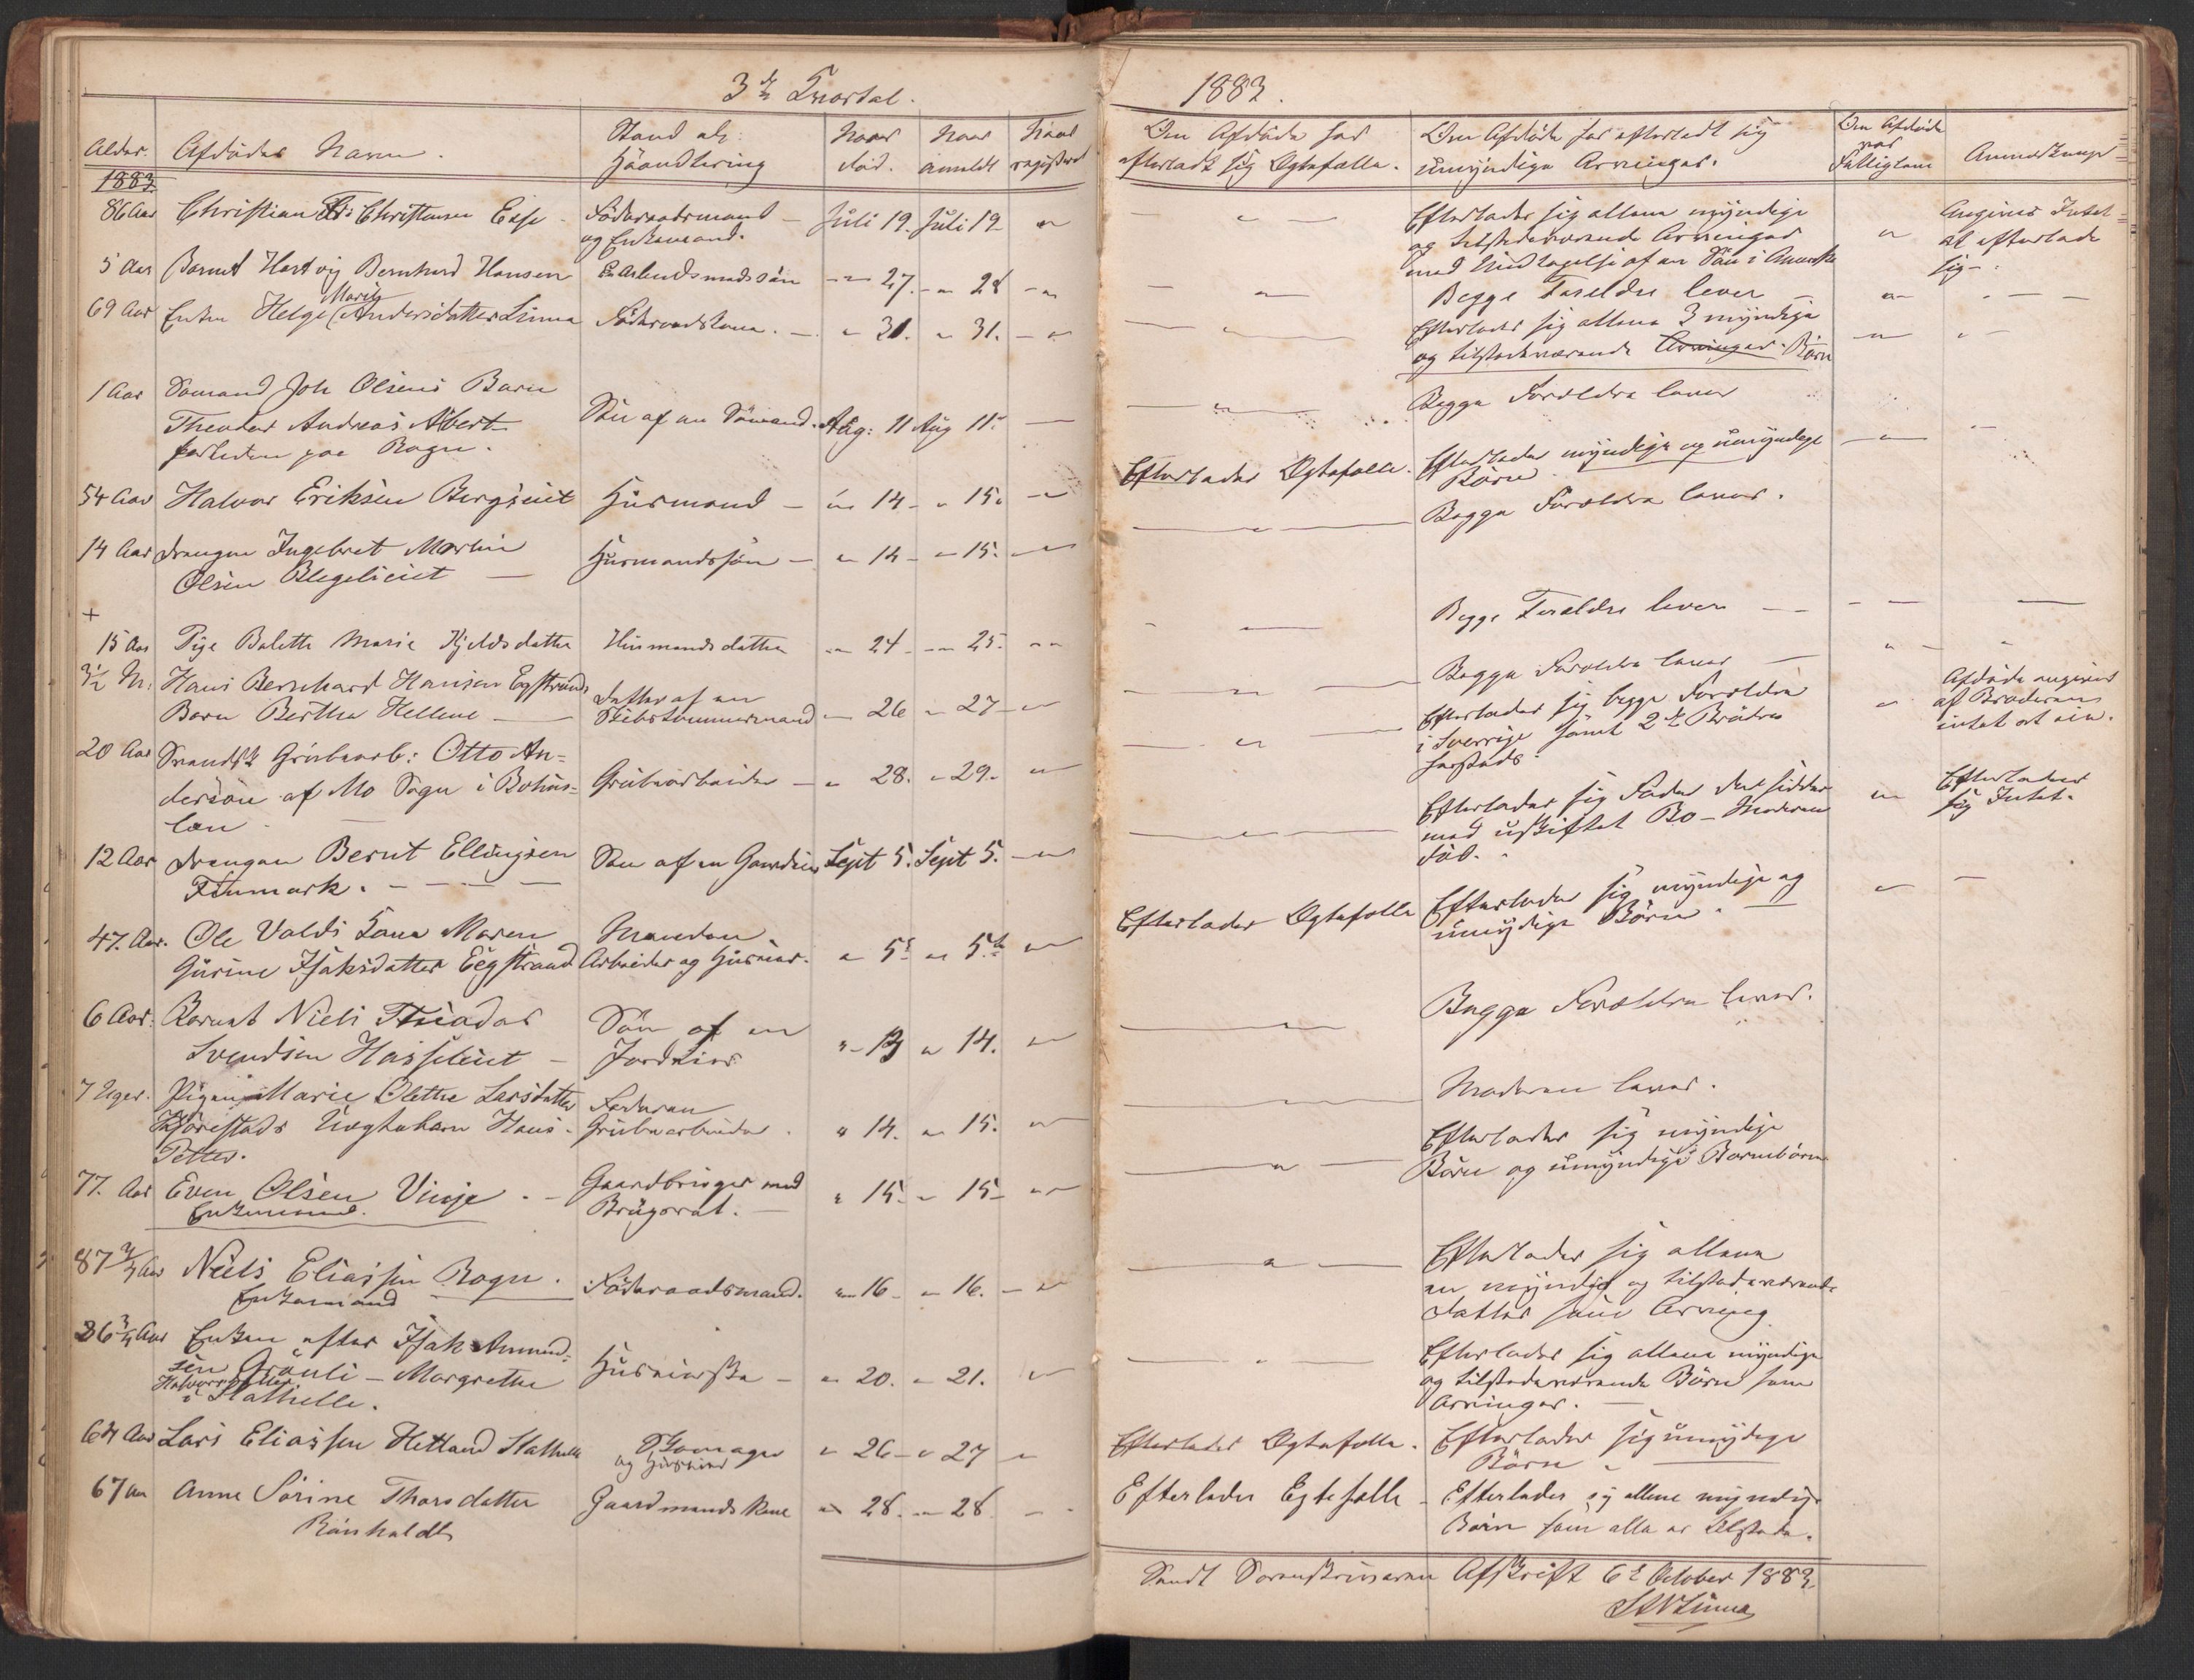 3die Qvartal.
Alder.
Afdødes Navn.
Stand eller Haandtering
Naar død.
Naar anmeldt
Naar registreret
1883
86 Aar Christian Christensen Exe - Føderaadsmand - Juli 19. Juli 19 "
og Enkemand.
5 Aar Barnet Hartvig Bernhard Hansen En Arbeidsmads søn - " 27. - " 28 - "
69 Aar Enken Helge Marie Andersdatter Linna Føderaadskone. - " 31. " 31. - "
1 Aar Sømand Joh Olsens Barn
Theodor Andreas Albert Søn af en Sømand. Aug: 11 Aug 11. -
paa Rogn.
54 Aar Halvor Eriksen Bergseiet Husmand - " 14 - " 15. - "
14 Aar Drengen Ingebret Martin
Olsen - Husmandssøn - " 14 - " 15. - "
+
15 Aar Pige Bolette Marie Kjeldsdatter Husmandsdatter " 24 - " 25. "
3½ M. Hans Bernhard Hansen Egstrands
Barn Berthe Hellene - Datter af en
Skibstømmermand - 26 - 27 - "
20 Aar Svensk Grubearb: Otto An=
dersøn af Mo Sogn i Bohus= Grubearbeider - " 28. " 29. "
len -
12 Aar Drengen Bernt Ellingsen Søn af en Sept 5. Sept 5. - "
Finmark. -
47. Aar. Ole Valds Kone Maren Manden
Gurine Isaksdatter Eegstrand Arbeider og Huseier. " 5 " 5 "
6 Aar. Barnet Niels
Svendsen Hasseleiet - Søn af en
Jordeier " 13 " 14. "
7 Uger. Pigen Marie Olette Larsdatter
Uægtebarn Hans Faderen
Petter. Grubearbeider. " 14. " 15. "
77. Aar Even Olsen Vinje. - Gaardbruger med
Enkemand. Brugsret. - " 15. " 15 - "
87¾ Aar Niels Eliassen Rogn. Føderaadsmand. " 16 - " 16. - "
Enkemand
86¾ Aar Enken efter Isak Amund=
sen Grønli - Margrethe
Halvorsdatter
i Stathelle. Huseierske - " 20. " 21. "
64 Aar Lars Eliassen Hetland Stathelle Skomager
og Huseier " 26 - " 27 "
67 Aar Anne Sørine Thorsdatter
Rønholdt Gaardmandskone " 28. " 28 -
1883.
Om Afdøde har
efterladt sig Ægtefælle.
Om Afdøde har efterladt sig
umyndige Arvinger.
Om Afdøde
var
Fattiglem
Anmerkninger
Efterlader sig allene myndige
og tilstedeværende Arvinger
med Undtagelse af en Søn i Amerika
Angives Intet
at efterlade
sig.
Begge Foreldre lever -
Efterlader sig allene 3 myndige
og tilstedeværende Arvinger. Børn
Begge Forældre lever
Efterlader Ægtefælle. Efterlader myndige og umyndige
Børn
Begge Forældre lever.
Begge Forældre lever -
Begge Forældre lever -
Efterlader sig begge Forældre
i Sverrige samt 2de Brødre
Afdøde angives
af Broderen
intet at eie.
Efterlader sig Fader der sidder
med uskiftet Bo - Moderen
død.
Efterlader
sig Intet.
Efterlader Ægtefælle Efterlader sig myndige og
umyndige Børn. -
Begge Forældre lever.
Moderen lever.
Efterlader sig myndige
Børn og umyndige Børnebørn
Efterlader sig allene
en myndig og tilstedeværende
Datter som Arving
Efterlader sig allene myndige
og tilstedeværende Børn som
Arvinger. -
Efterlader Ægtefælle. Efterlader sig umyndige
Børn -
Efterlader Egtefælle - Efterlader sig allene myndige
Børn som alle er tilstede.
Sendt Sorenskriveren Afskrift 6te October 1883